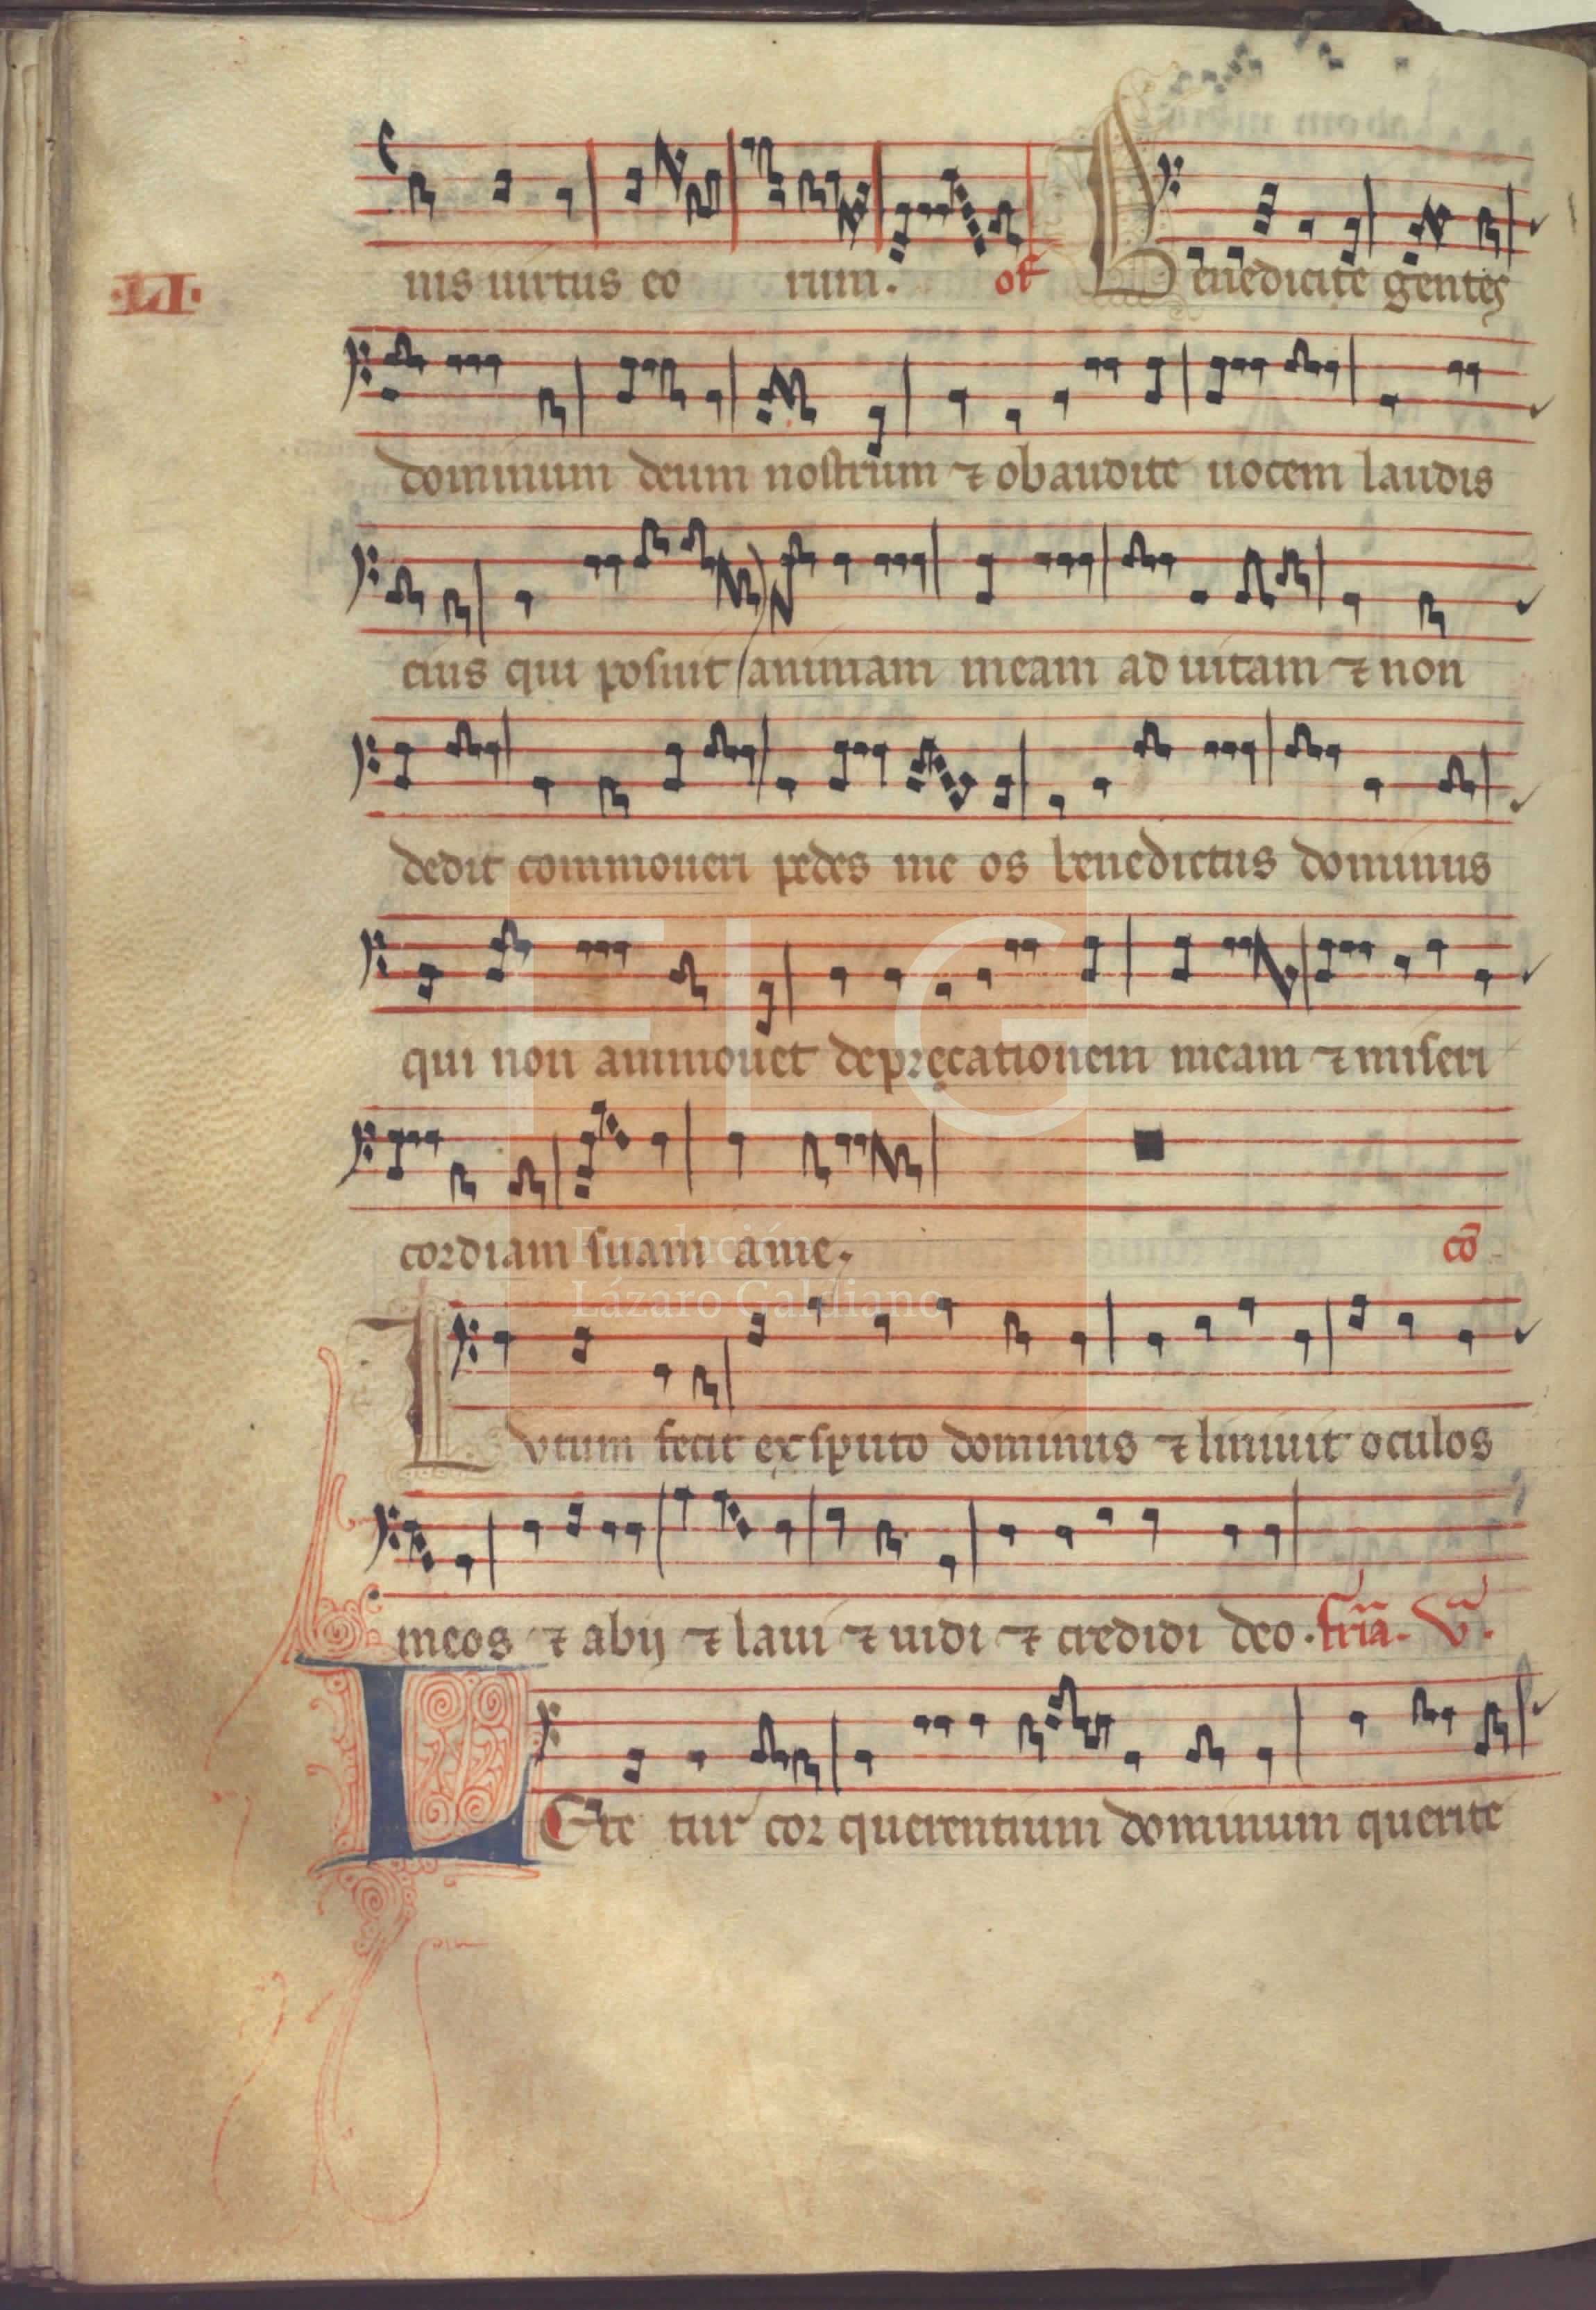 nis uirtus eo rum. of Benedicite gentes
·LI·
dominum deum nostrum ⁊ obaudite uocem laudis
eius qui posuit animam meam ad uitam ⁊ non
dedit commoueri pedes me os benedictus dominus
qui non ammouet deprecationem meam ⁊ miseri
cordiam suam a me. cō
Lutum fecit ex sputo dominus ⁊ liniuit oculos
meos ⁊ abij ⁊ laui ⁊ uidi ⁊ credidi deo. fr̄ia. v̄.
LEte tur cor querentium dominum querite
FLG
Fundación
Lázaro Galdiano